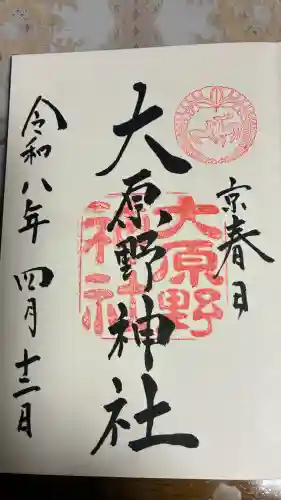 京春日
大原野神社
大原野
神社
令和八年 四月 十二日